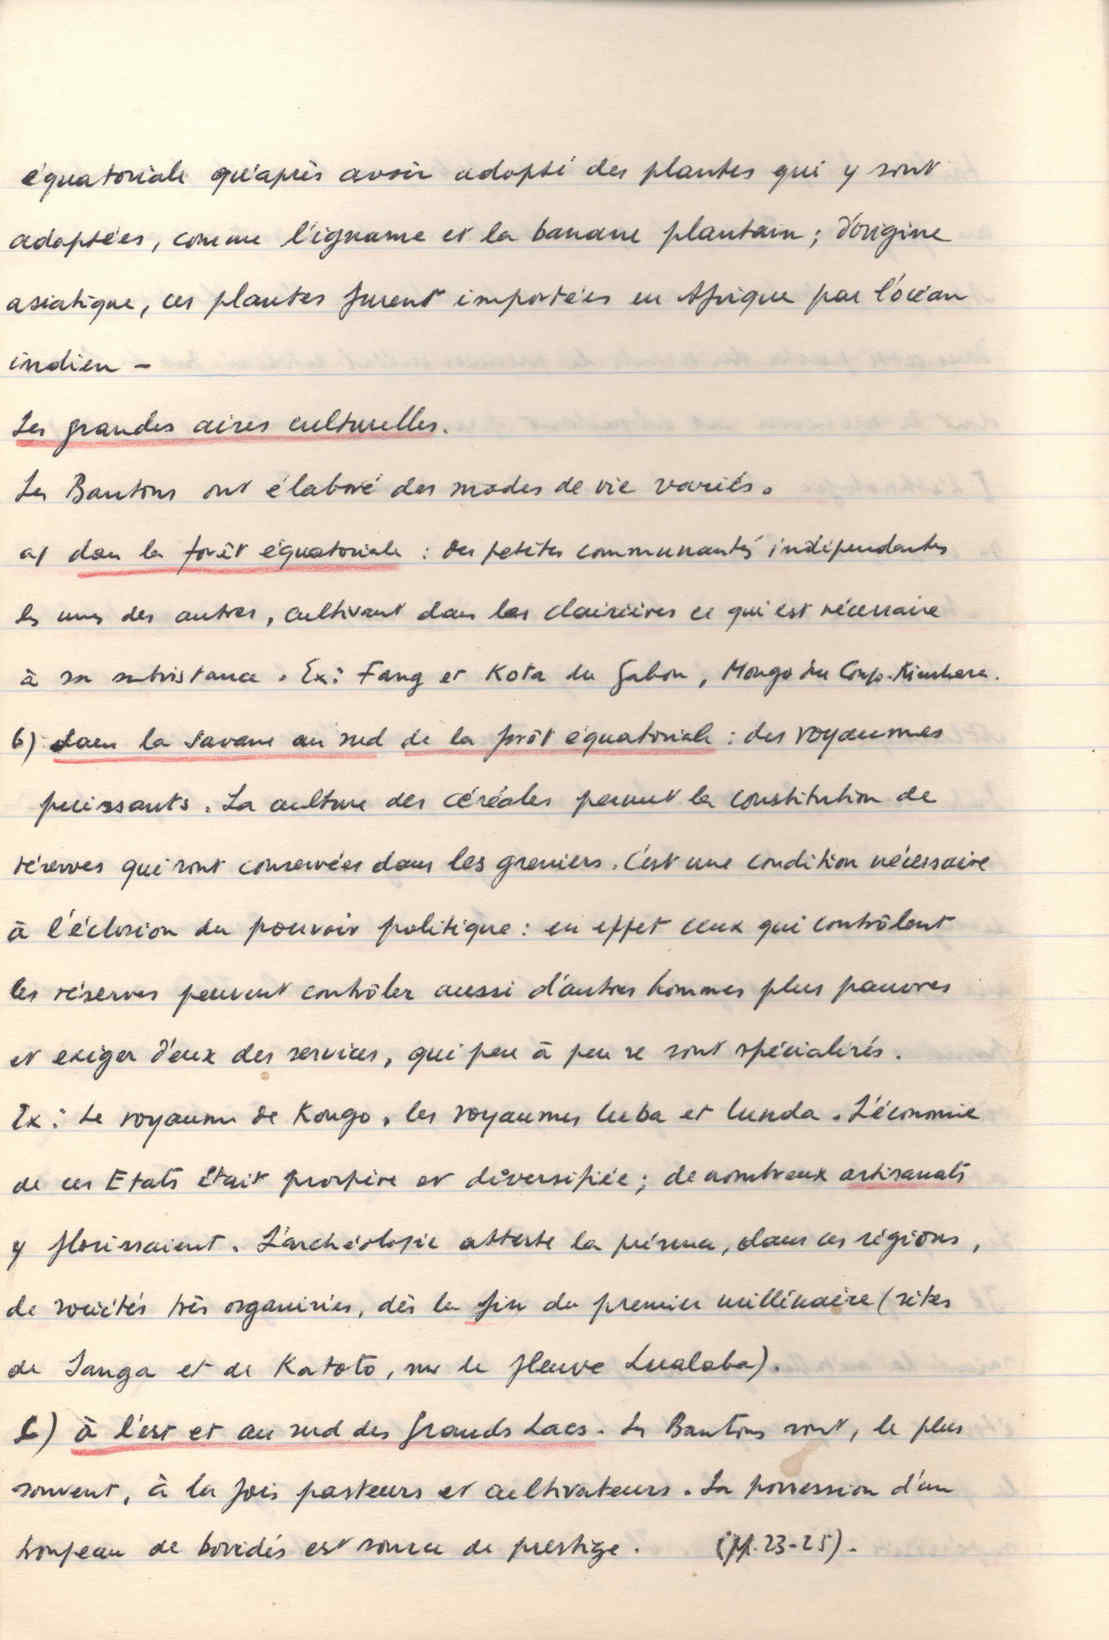 équatoriale qu'après avoir adopté des plantes qui y sont
adaptées, comme l'igname et la banane plantain ; d'origine
asiatique, ces plantes furent importées en Afrique par l'océan
indien –
Les grandes aires culturelles.
Les Bantous ont élaboré des modes de vie variés.
a) dans la forêt équatoriale : des petites communautés indépendantes
les unes des autres, cultivant dans les clairières ce qui est nécessaire
à sa subsistance. Ex : Fang et Kota du Gabon, Mongo du Congo-Kinshasa.
b) dans la savane au sud de la forêt équatoriale : des royaumes
puissants. La culture des céréales permet la constitution de
réserves qui sont conservées dans les greniers. C'est une condition nécessaire
à l'éclosion du pouvoir politique : en effet ceux qui contrôlent
les réserves peuvent contrôler aussi d'autres hommes plus pauvres
et exiger d'eux des services, qui peu à peu se sont spécialisés.
Ex : Le royaume de Kongo, les royaumes luba et lunda. L'économie
de ces Etats était prospère et diversifiée ; de nombreux artisanats
y florissaient. L'archéologie atteste la présence, dans ces régions,
de sociétés très organisées, dès la fin du premier millénaire (sites
de Sanga et de Katoto, sur le fleuve Lualaba).
c) à l'est et au sud des Grands Lacs. Les Bantous sont, le plus
souvent, à la fois pasteurs et cultivateurs. La possession d'un
troupeau de bovidés est source de prestige. (pp. 23-25).